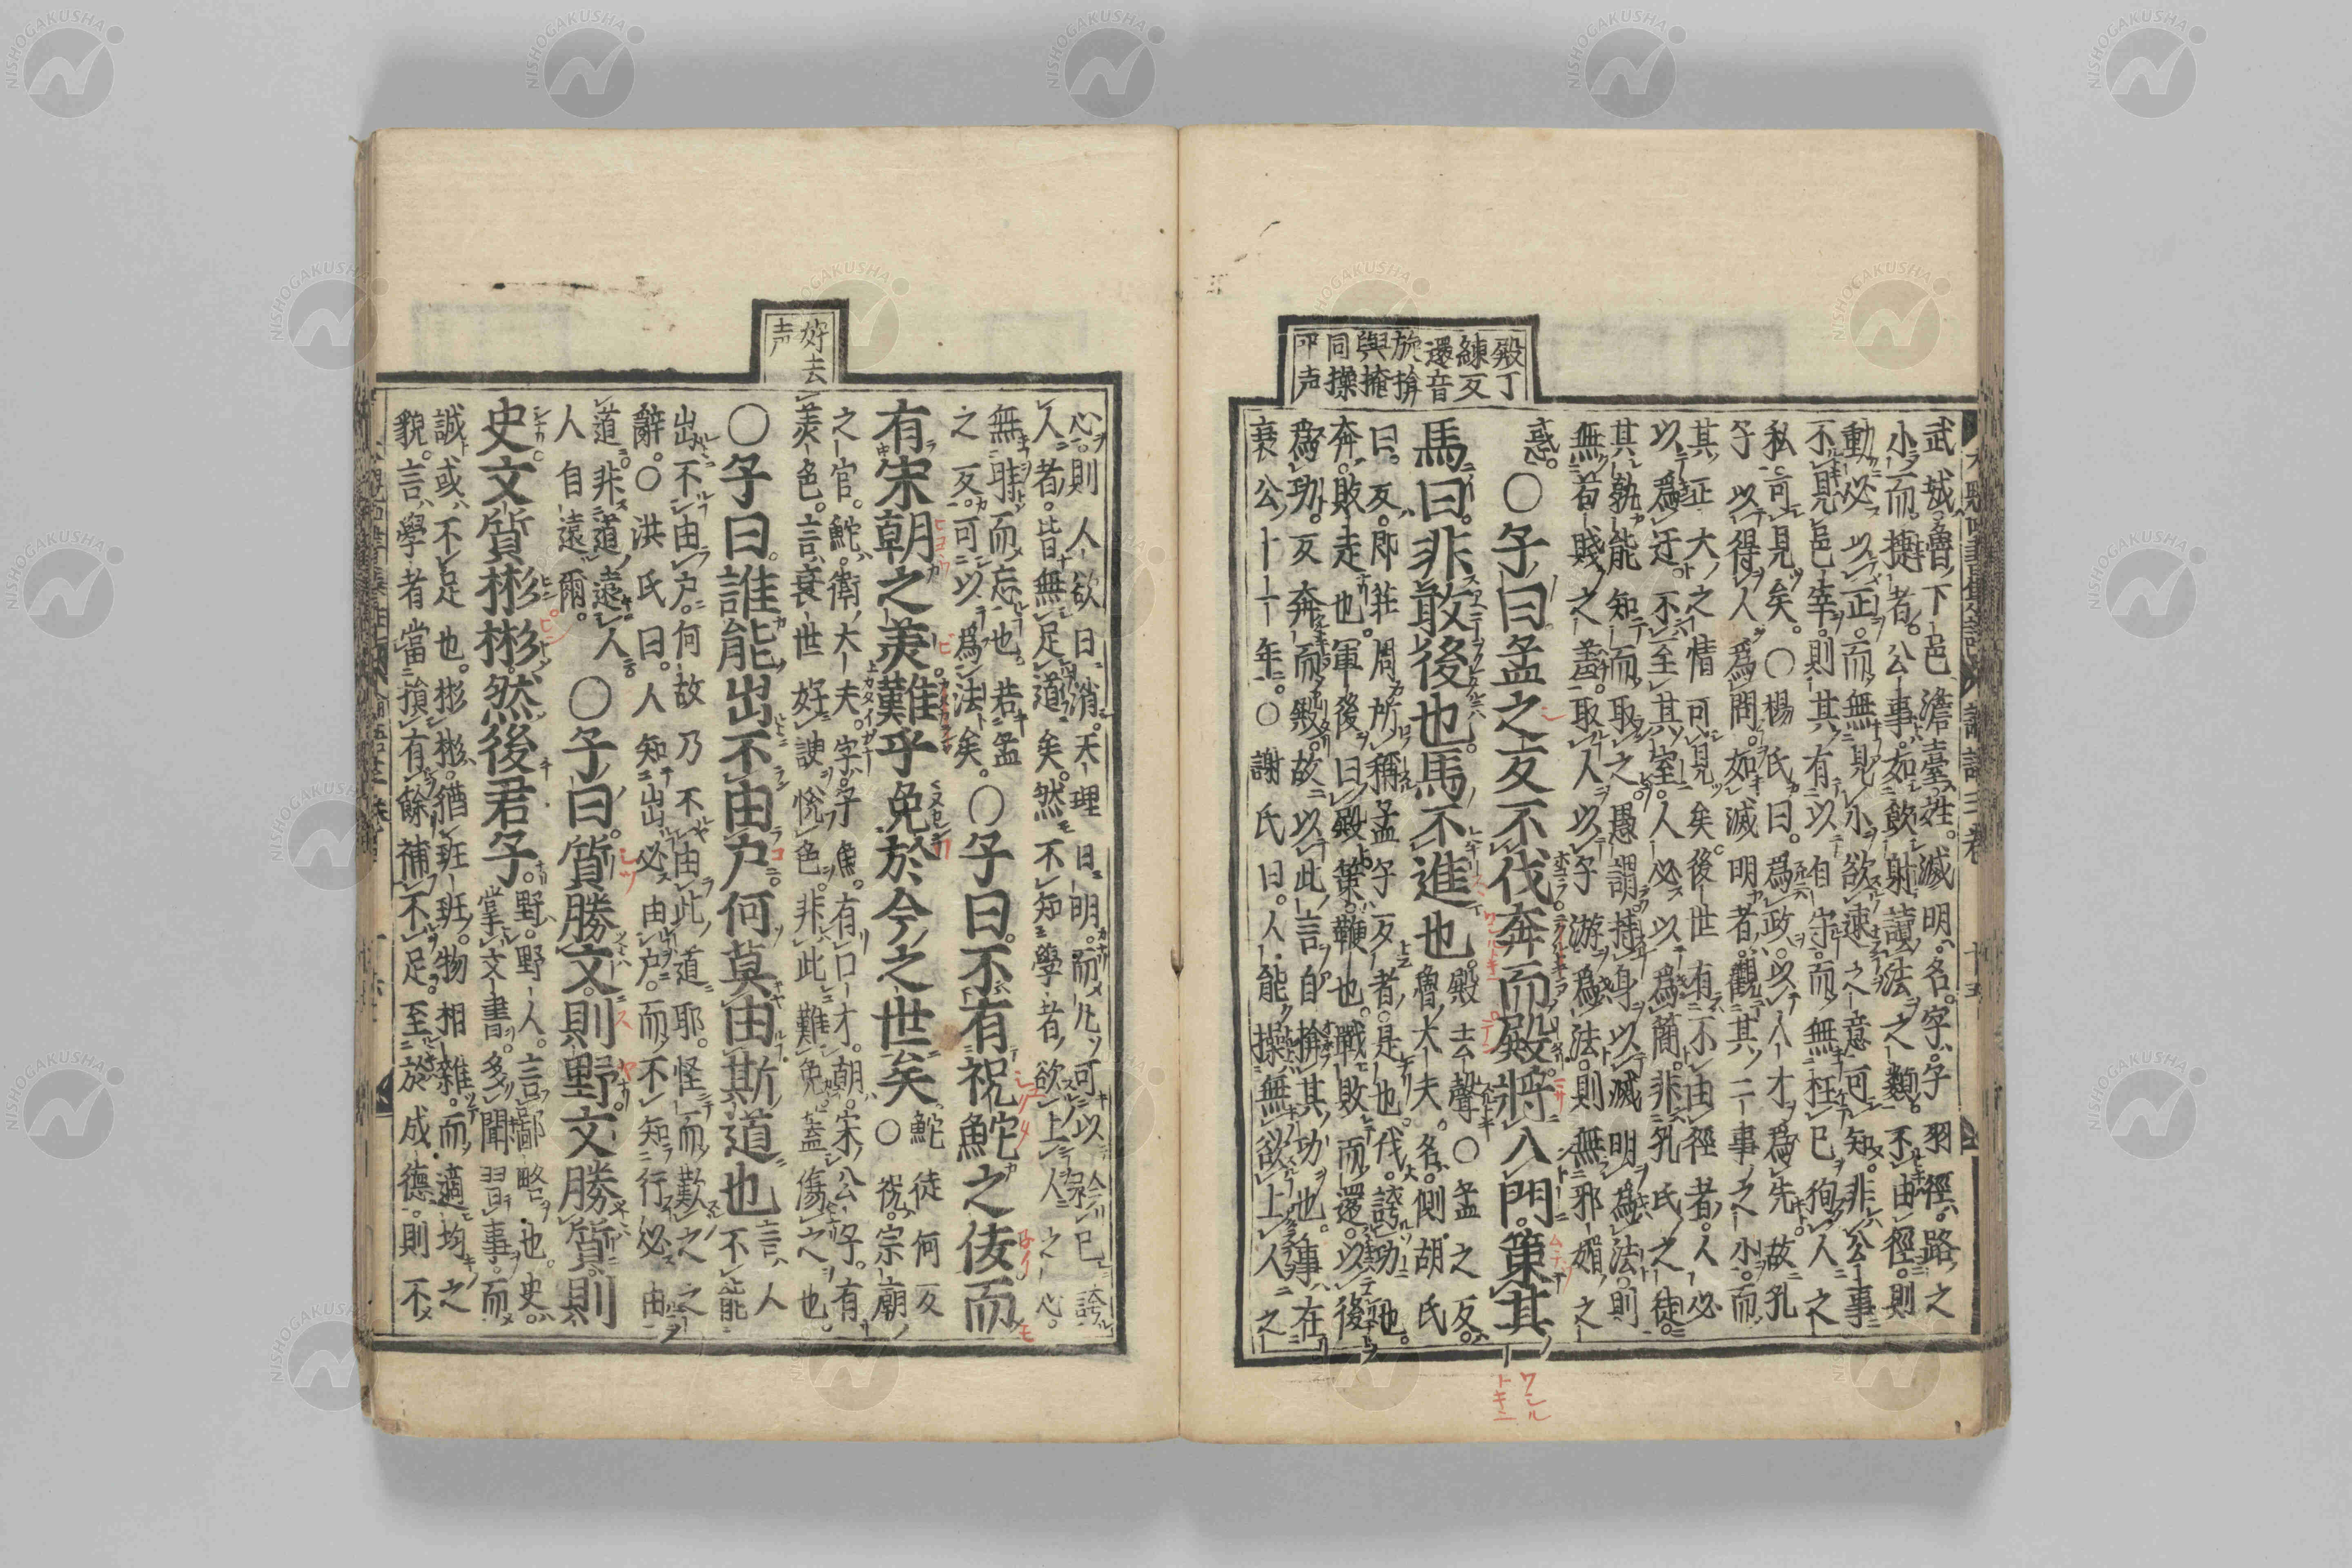 殿丁
練反
還音
旋揜
與掩
同操
平声
武城。魯下邑。澹臺姓。滅明。名。字子羽。徑。路之
小而捷者。公事。如飲射讀法之類。不由徑。則
動必以正。而無見小欲速之意可知。非公事
不見邑宰。則其有以自守。而無枉已狥人之
私。可見矣。〇楊氏曰。爲政。以人才爲先。故孔
子以得人爲問。如滅明者。觀其二事之小。而
其正大之情可見矣。後世有不由徑者。人必
以爲迂。不至其室。人必以爲簡。非孔氏之徒。
其孰能知而取之。愚謂。持身以滅明爲法。則
無苟賤之羞。取人以子游爲法。則無邪媚之
惑。〇子曰。孟之反不伐奔而殿。將入門。策其
馬曰。非敢後也。馬不進也。殿去聲〇孟之反。
魯大夫。名側。胡氏
曰。反。即莊周所稱孟子反者。是也。伐。誇功也。
奔。敗走也。軍後曰殿。策。鞭也。戰敗而還。以後
爲功。反奔而殿。故以此言自揜其功也。事在
哀公十一年。〇謝氏曰。人能操無欲上人之
好去
声
心。則人欲日消。天理日明。而凡可以矜已誇
人者。皆無足道矣。然不知學者。欲上人之心。
無時而忘也。若孟
之反。可以爲法矣。〇子曰。不有祝鮀之佞而
有宋朝之美。難乎免於今之世矣。鮀徒何反
〇祝。宗廟
之官。鮀。衛大夫。字子魚。有口才。朝。宋公子。有
美色。言。衰世好諛悅色。非此難免。蓋傷之也。
〇子曰。誰能出不由户。何莫由斯道也言。人
不能
出不由户。何故乃不由此道耶。怪而歎之之
辭。〇洪氏曰。人知出必由户。而不知行必由
道。非道遠人。
人自遠爾。〇子曰。質勝文。則野。文勝質。則
史。文質彬彬。然後君子。野。野人。言鄙略也。史。
掌文書。多聞習事。而
誠或不足也。彬彬。猶班班。物相雜。而適均之
貌。言。學者當損有餘補不足。至於成德。則不